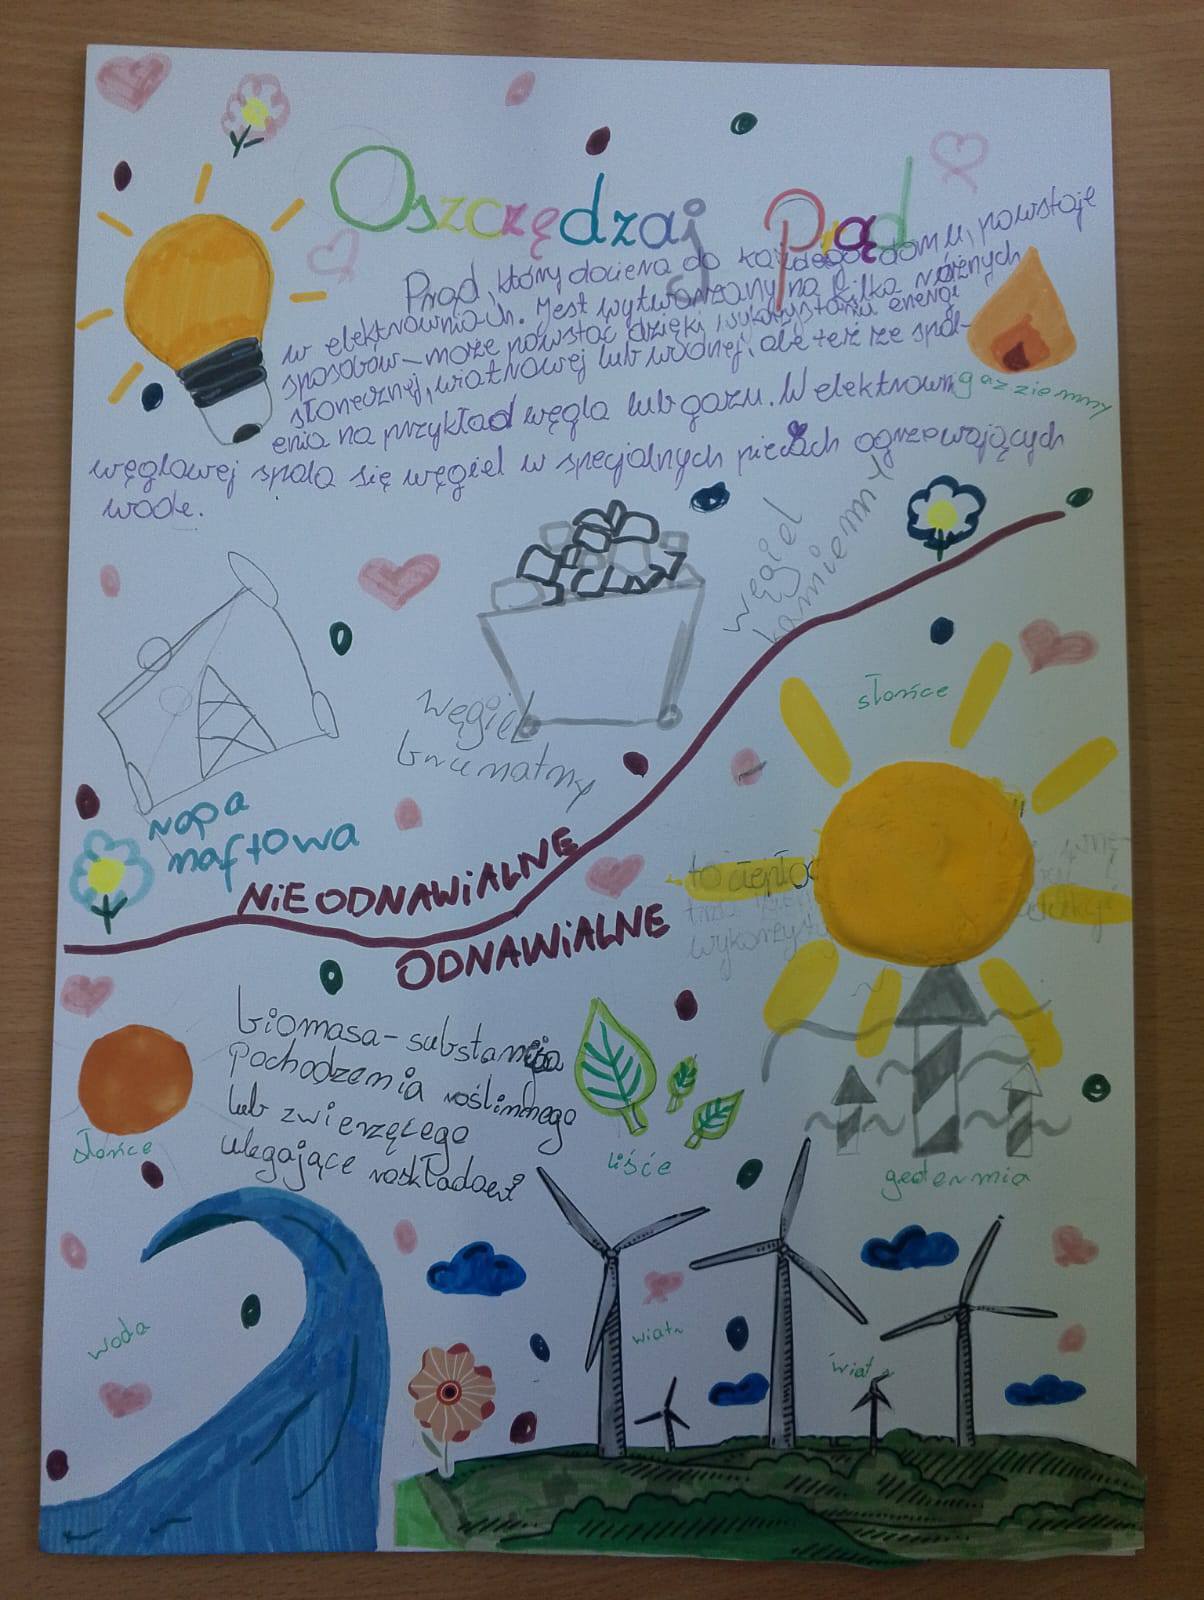 Oszczędzaj Prąd
Prąd, który dociera do każdego domu, powstaje
w elektrowniach. Jest wytwarzany na kilka różnych
sposobów – może powstać dzięki wykorzystaniu energi
słonecznej, wiatrowej lub wodnej, ale też ze spal-
enia na przykład węgla lub gazu. W elektrowni
węglowej spala się węgiel w specjalnych piecach ogrzewających
wodę.
gaz ziemny
węgiel
kamienny
węgiel
brunatny
ropa
naftowa
NIEODNAWIALNE
ODNAWIALNE
słońce
to ciepło
biomasa – substancja
pochodzenia roślinnego
lub zwierzęcego
ulegające roskładowi
słońce
liście
geotermia
woda
wiatr
wiatr